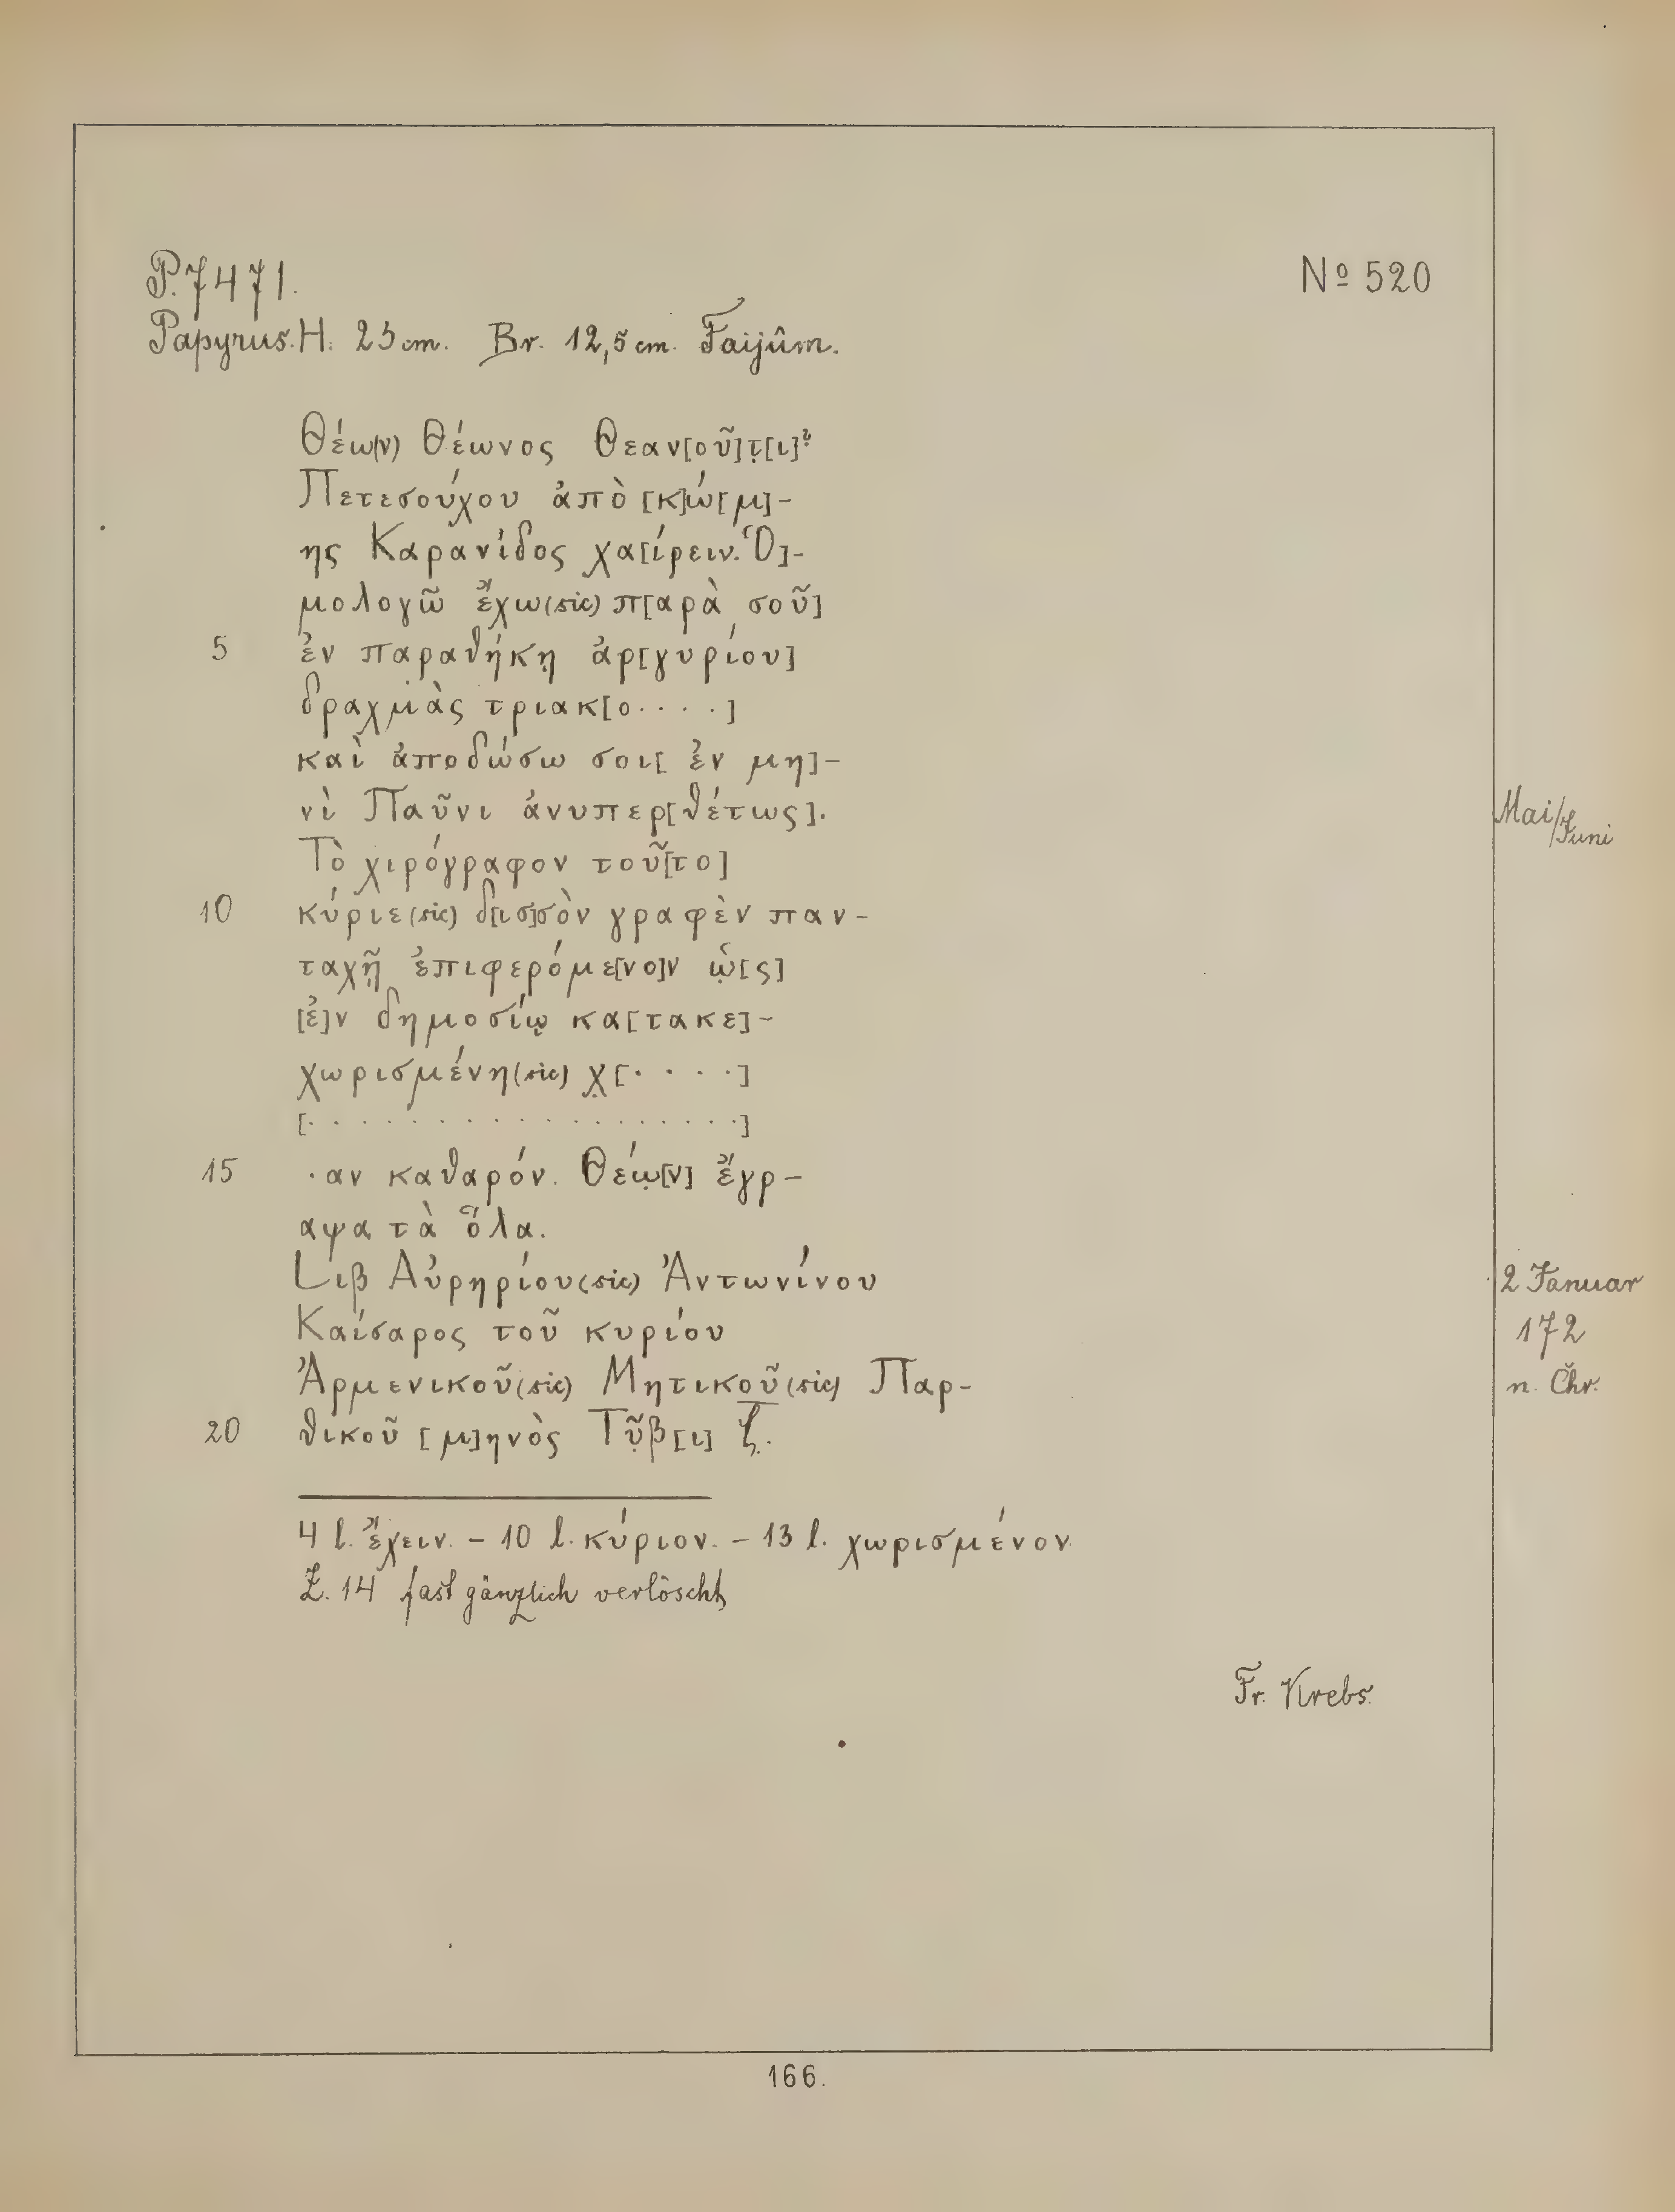 P. 7471.
Nº 520
Papyrus. H. 23 cm. Br. 12,5 cm. Faijûm.
Θέω(ν) Θέωνος Θεαν[οῦ]τ̣[ι]?
Πετεσούχου ἀπὸ [κ]ώ[μ]-
ης Καρανίδος χα[ίρειν. Ὁ]-
μολογῶ ἔχω(sic) π[αρὰ σοῦ]
5 ἐν παραθήκῃ ἀρ[γυρίου]
δραχμὰς τριακ[ο....]
καὶ ἀποδώσω σοι[ ἐν μη]-
νὶ Παῦνι ἀνυπερ[θέτως].
Mai/Juni
Τὸ χιρόγραφον τοῦ[το]
10 κύριε(sic) δ[ισ]σὸν γραφὲν παν-
ταχῇ ἐπιφερόμε[νο]ν ὡ̣[ς]
[ἐ]ν δημοσίῳ κα[τακε]-
χωρισμένη(sic) χ̣[....]
[.................]
15 .αν καθαρόν. Θέω̣[ν] ἔγρ-
αψα τὰ ὅλα.
L ιβ Αὐρηρίου(sic) Ἀντωνίνου
2 Januar
Καίσαρος τοῦ κυρίου
172
Ἀρμενικοῦ(sic) Μητικοῦ(sic) Παρ-
n. Chr.
20 θικοῦ [μ]ηνὸς Τῦ̣β[ι] ζ̣̅.
4 l. ἔχειν. – 10 l. κύριον. – 13 l. χωρισμένον.
Z. 14 fast gänzlich verlöscht
Fr. Krebs.
166.